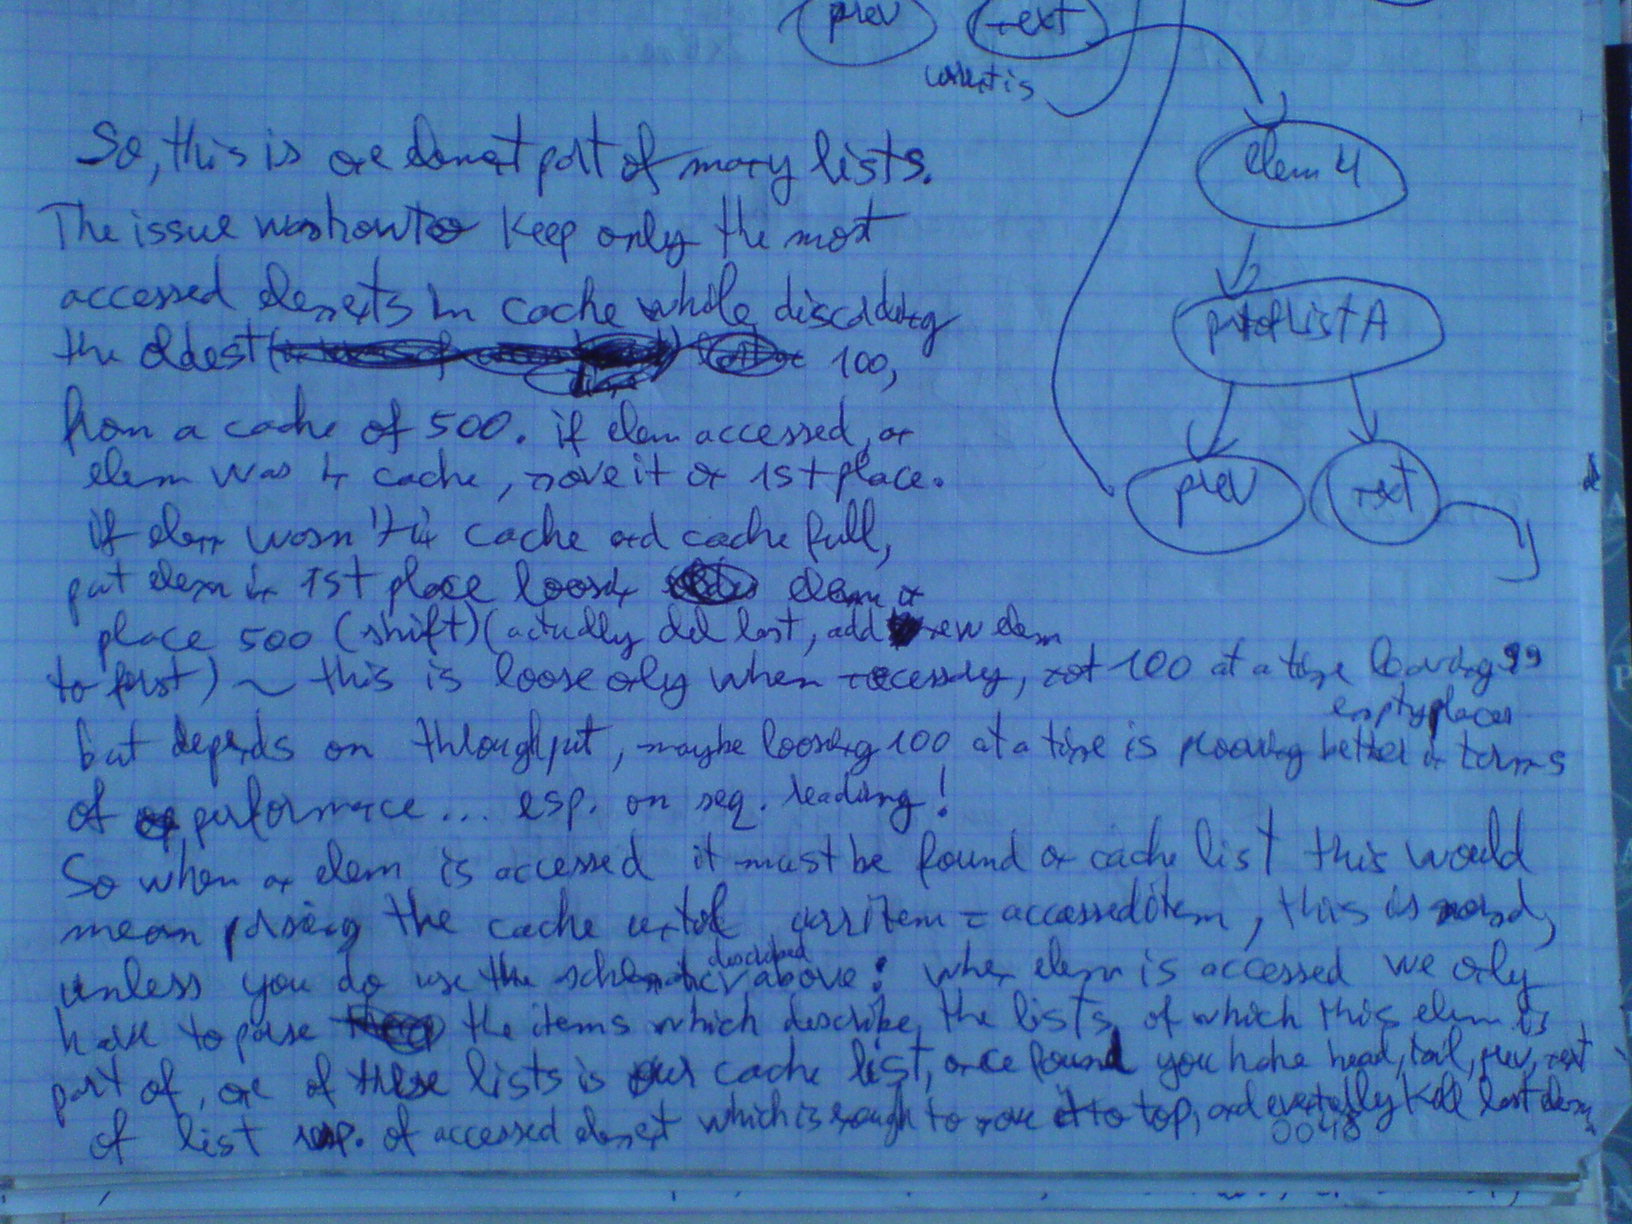 prev next
context is
elem 4
part of List A
prev next
So, this is one element part of many lists.
The issue was how to keep only the most
accessed elements in cache while discarding
the oldest 100,
from a cache of 500. if elem accessed, or
elem was in cache, move it on 1st place.
if elem wasn't in cache and cache full,
put elem in 1st place loosing elem on
place 500 (shift) (actually del last, add new elem
to first) ~ this is loose only when necessary, not 100 at a time leaving 99
empty places
but depends on throughput, maybe loosing 100 at a time is prooving better in terms
of performance... esp. on seq. reading!
So when an elem is accessed it must be found on cache list this would
mean parsing the cache until curritem = accesseditem, this is
unless you do use the schematic described above: when elem is accessed we only
have to parse the items which describe the lists of which this elem is
part of, one of these lists is our cache list, once found you have head, tail, prev, next
of list resp. of accessed element which is enough to move it to top, and eventually kill last elem
0048